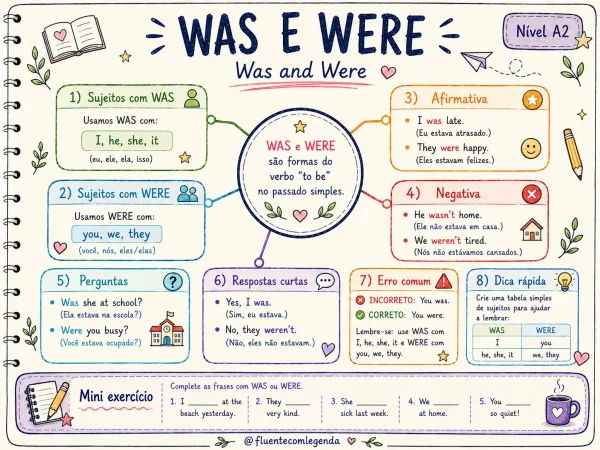 WAS E WERE
Was and Were
Nível A2
1) Sujeitos com WAS
Usamos WAS com:
I, he, she, it
(eu, ele, ela, isso)
2) Sujeitos com WERE
Usamos WERE com:
you, we, they
(você, nós, eles/elas)
WAS e WERE
são formas do
verbo "to be"
no passado simples.
3) Afirmativa
• I was late.
(Eu estava atrasado.)
• They were happy.
(Eles estavam felizes.)
4) Negativa
• He wasn't home.
(Ele não estava em casa.)
• We weren't tired.
(Nós não estávamos cansados.)
5) Perguntas
• Was she at school?
(Ela estava na escola?)
• Were you busy?
(Você estava ocupado?)
6) Respostas curtas
• Yes, I was.
(Sim, eu estava.)
• No, they weren't.
(Não, eles não estavam.)
7) Erro comum
INCORRETO: You was.
CORRETO: You were.
Lembre-se: use WAS com
I, he, she, it e WERE com
you, we, they.
8) Dica rápida
Crie uma tabela simples
de sujeitos para ajudar
a lembrar:
WAS WERE
I you
he, she, it we, they
Mini exercício
Complete as frases com WAS ou WERE.
1. I ______ at the
beach yesterday.
2. They ______
very kind.
3. She ______
sick last week.
4. We ______
at home.
5. You ______
so quiet!
@fluentecomlegenda